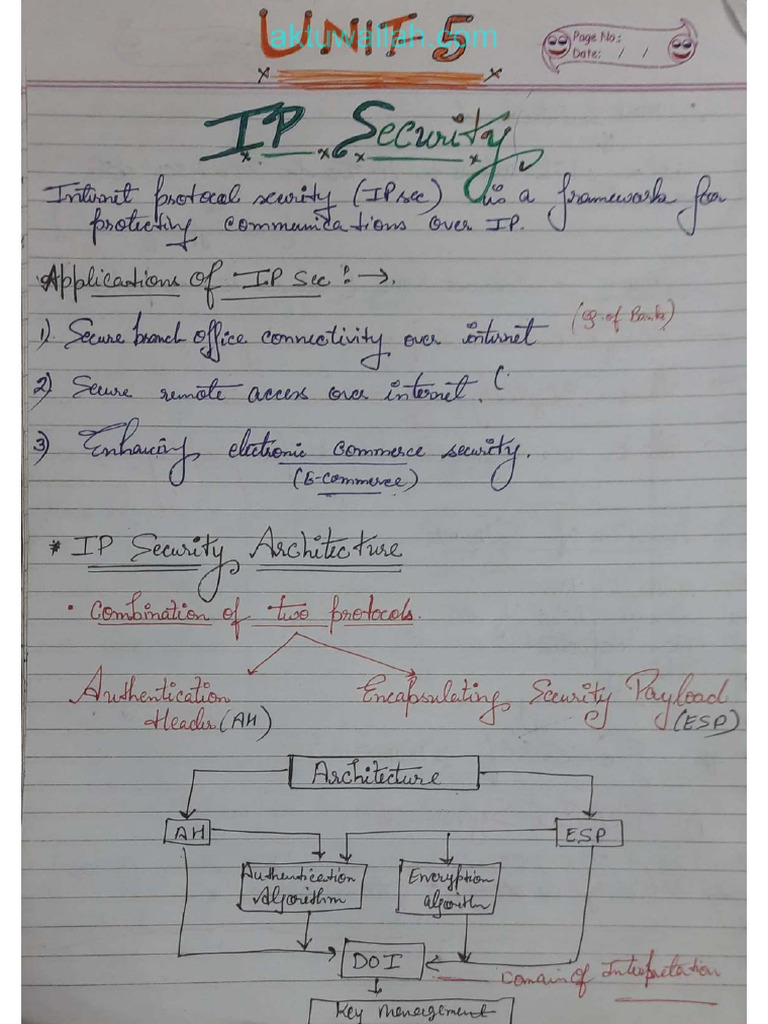 UNIT-5
aktuwallah.com
Page No:
Date: / /
IP Security
Internet protocal security (IPsec) is a framework for
protecting communications over IP.
Applications of IP Sec :→.
1) Secure branch office connectivity over internet (eg. of Banks)
2) Secure remote access over internet. (
3) Enhancing electronic commerce security.
(E-commerce)
* IP Security Architecture
• Combination of two protocols.
Authentication Encapsulating Security Payload
Header (AH) (ESP)
Architecture
AH ESP
Authentication Encryption
Algorithm algorithm
DOI
Domain of Intrepretation
Key management